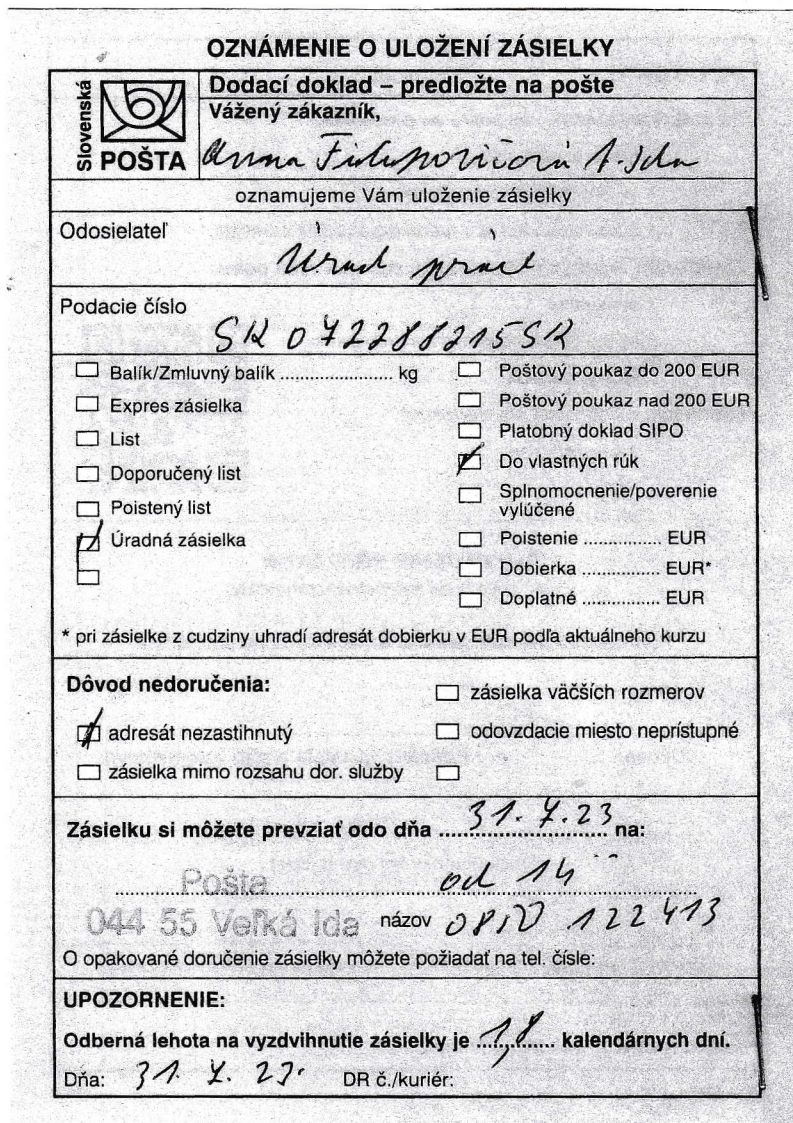 OZNÁMENIE O ULOŽENÍ ZÁSIELKY
Slovenská
POŠTA
Dodací doklad – predložte na pošte
Vážený zákazník,
Anna Filipovičová V. Ida
oznamujeme Vám uloženie zásielky
Odosielateľ
Úrad práce
Podacie číslo
SR 072288215SK
Balík/Zmluvný balík ...................... kg
Expres zásielka
List
Doporučený list
Poistený list
Úradná zásielka
Poštový poukaz do 200 EUR
Poštový poukaz nad 200 EUR
Platobný doklad SIPO
Do vlastných rúk
Splnomocnenie/poverenie
vylúčené
Poistenie ............... EUR
Dobierka ............... EUR*
Doplatné ............... EUR
* pri zásielke z cudziny uhradí adresát dobierku v EUR podľa aktuálneho kurzu
Dôvod nedoručenia:
adresát nezastihnutý
zásielka mimo rozsahu dor. služby
zásielka väčších rozmerov
odovzdacie miesto neprístupné
Zásielku si môžete prevziať odo dňa 31. 7. 23 na:
Pošta od 14
044 55 Veľká Ida názov 0850 122 413
O opakované doručenie zásielky môžete požiadať na tel. čísle:
UPOZORNENIE:
Odberná lehota na vyzdvihnutie zásielky je 18 kalendárnych dní.
Dňa: 31. 7. 23. DR č./kuriér: